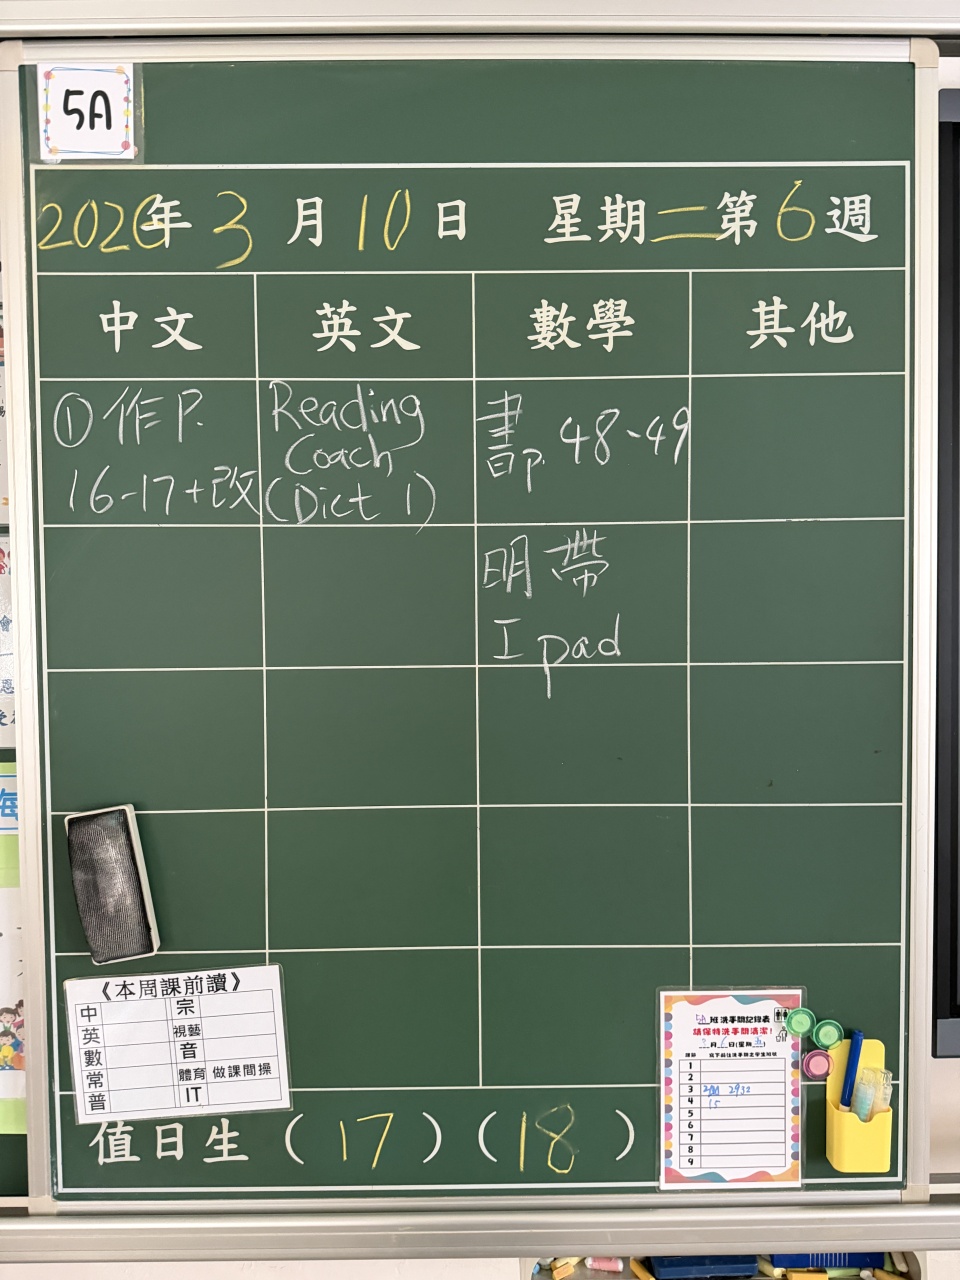 5A
2026年 3 月 10 日 星期二第 6 週
中文 英文 數學 其他
①作P.
16-17+改
Reading
Coach
(Dict 1)
書p. 48-49
明帶
Ipad
《本周課前讀》
中 宗
英 視藝
數 音
常 體育 做課間操
普 IT
值日生 ( 17 ) ( 18 )
5A 班洗手間記錄表
請保持洗手間清潔！
1
2
3
4
5
6
7
8
9